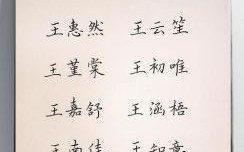 王惠然 王云笙
王堇棠 王初唯
王嘉舒 王涵梧
王南佳 王知意